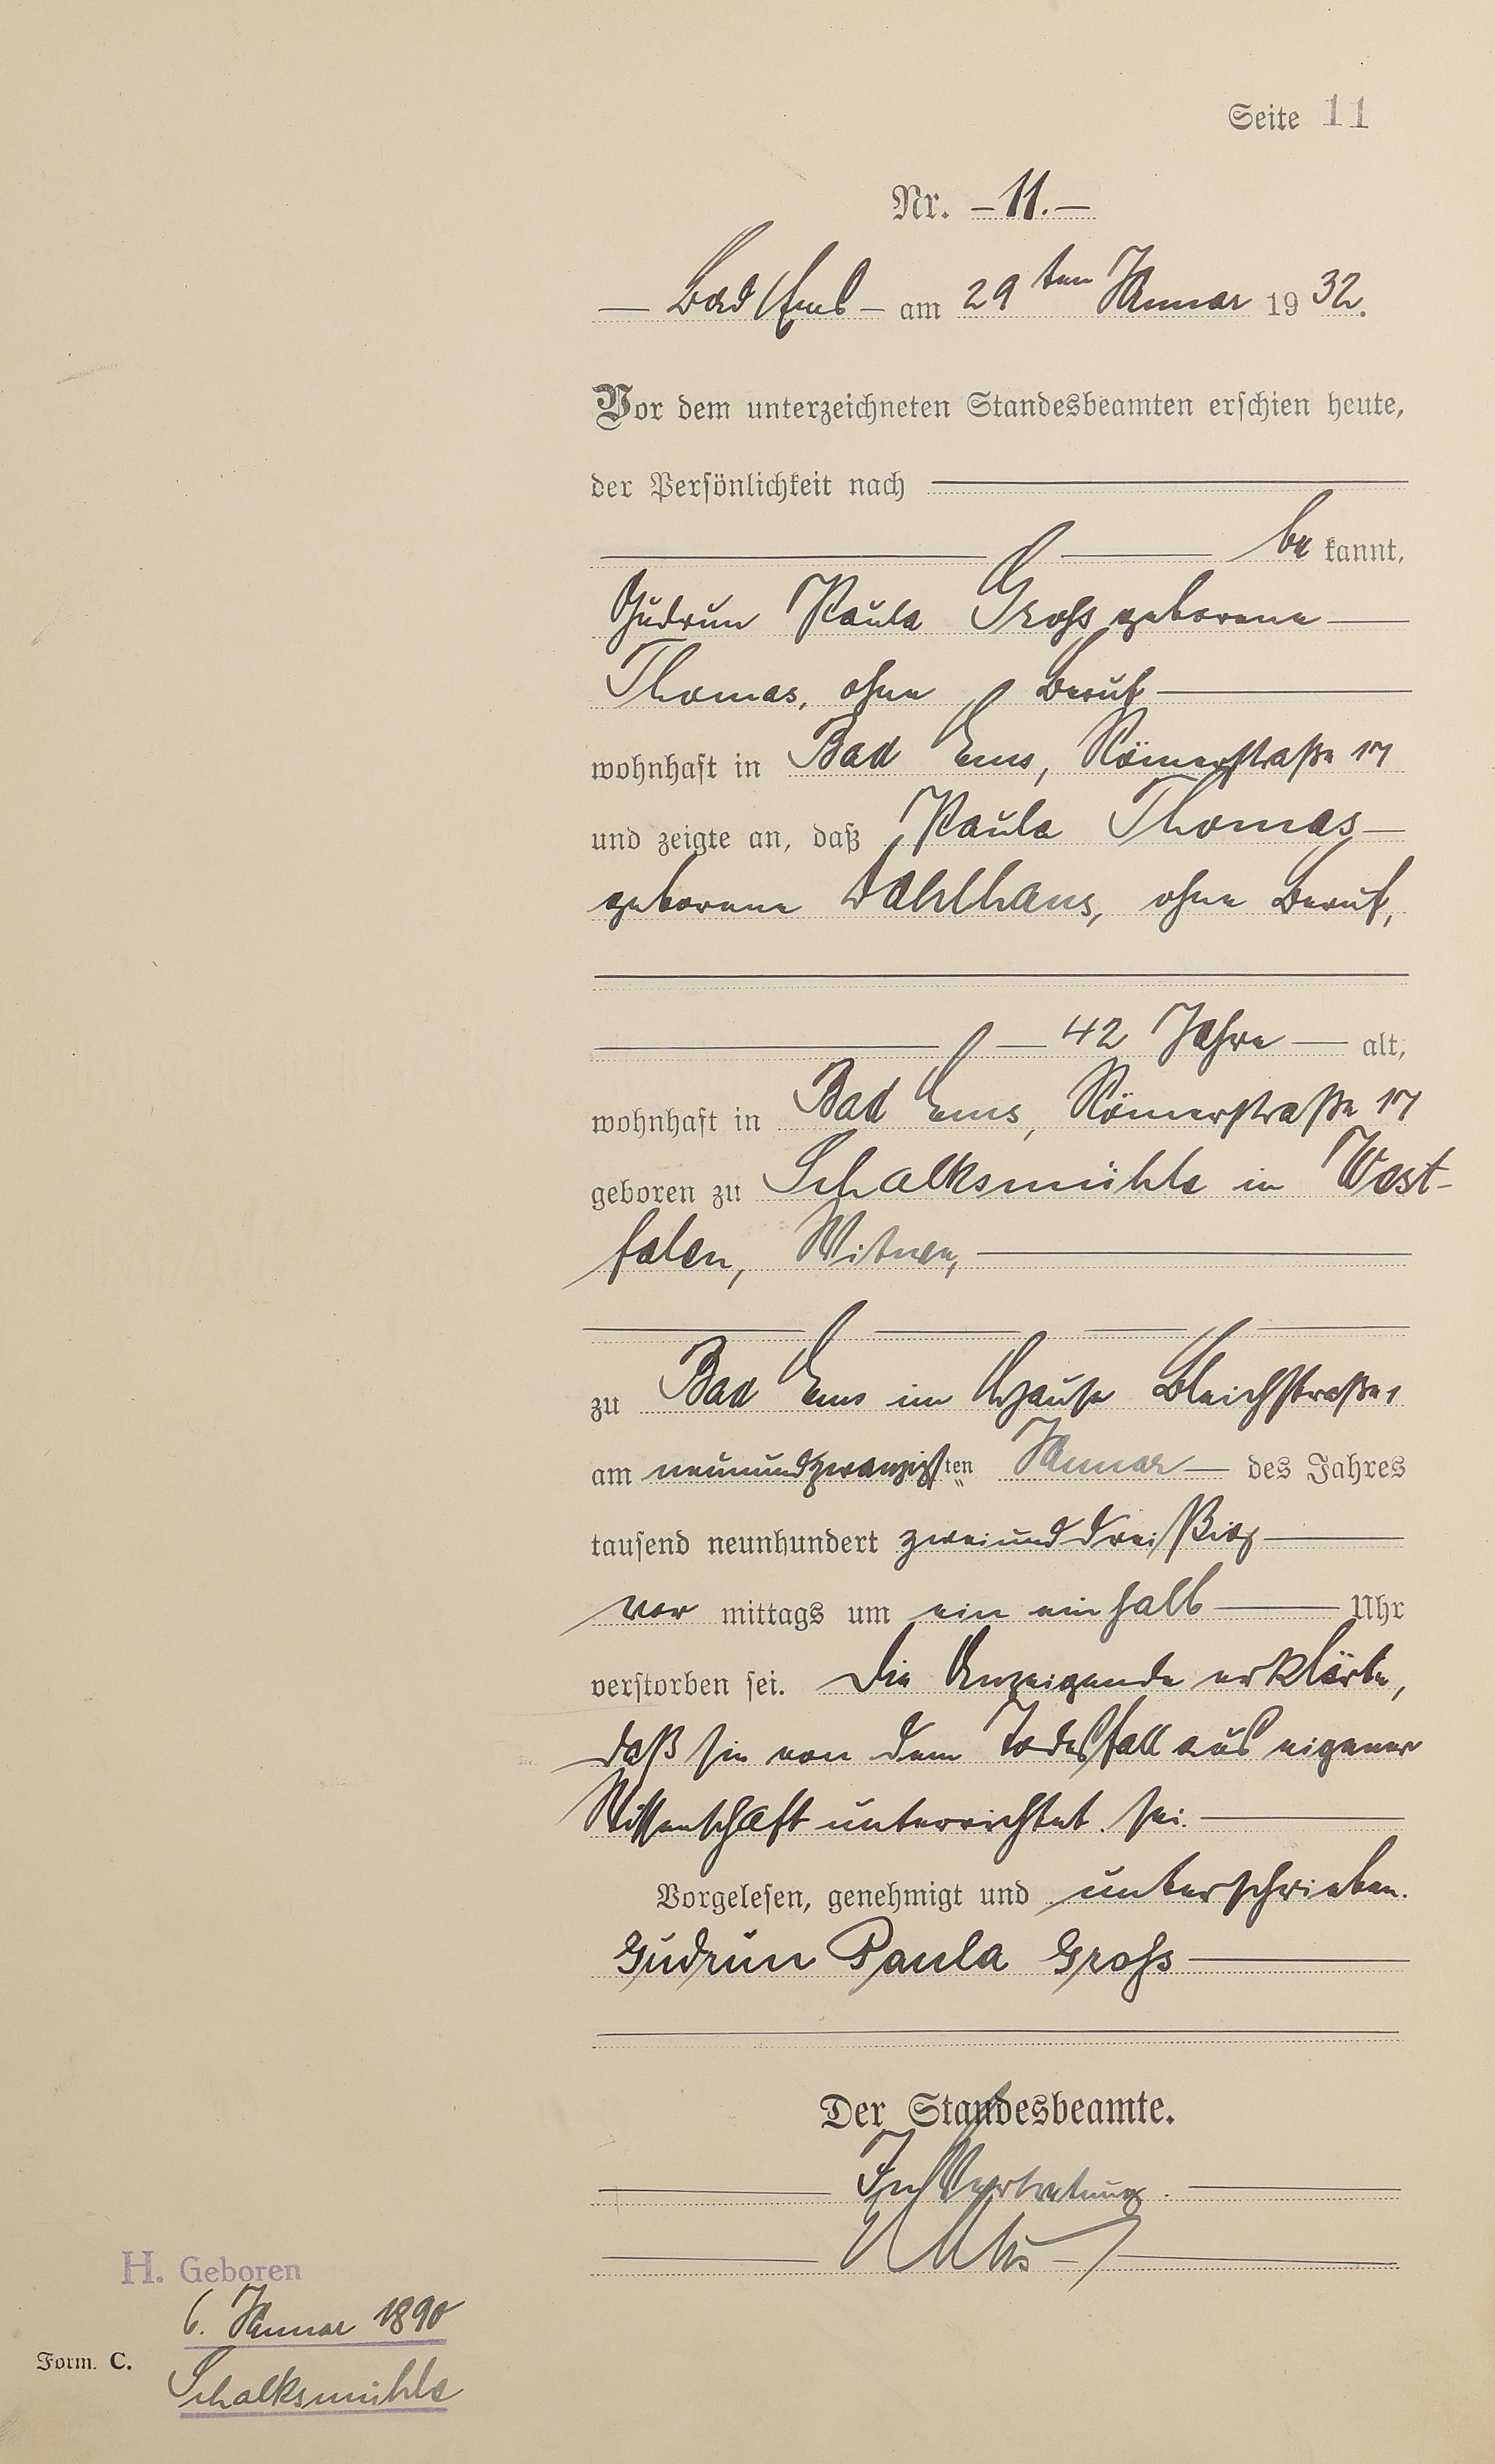 Seite 11
Nr. – 11. –
— Bad Ems — am 29ten Januar 1932.
Vor dem unterzeichneten Standesbeamten erschien heute,
der Persönlichkeit nach
be kannt,
Gudrun Paula Gross geborene
Thomas, ohne Beruf
wohnhaft in Bad Ems, Römerstraße 17
und zeigte an, daß Paula Thomas
geborene Dahlhaus, ohne Beruf,
42 Jahre — alt,
wohnhaft in Bad Ems, Römerstraße 17
geboren zu Schalksmühle in West-
falen, Witwe,
zu Bad Ems im Hause Bleichstraße 1
am neunundzwanzigsten Januar — des Jahres
tausend neunhundert zweiunddreißig
vor mittags um ein einhalb — Uhr
verstorben sei. Die Anzeigende erklärte,
daß sie von dem Todesfall aus eigener
Wissenschaft unterrichtet sei.
Vorgelesen, genehmigt und unterschrieben.
Gudrun Paula Gross
Der Standesbeamte.
In Vertretung.
H. Geboren
6. Januar 1890
Form. C.
Schalksmühle